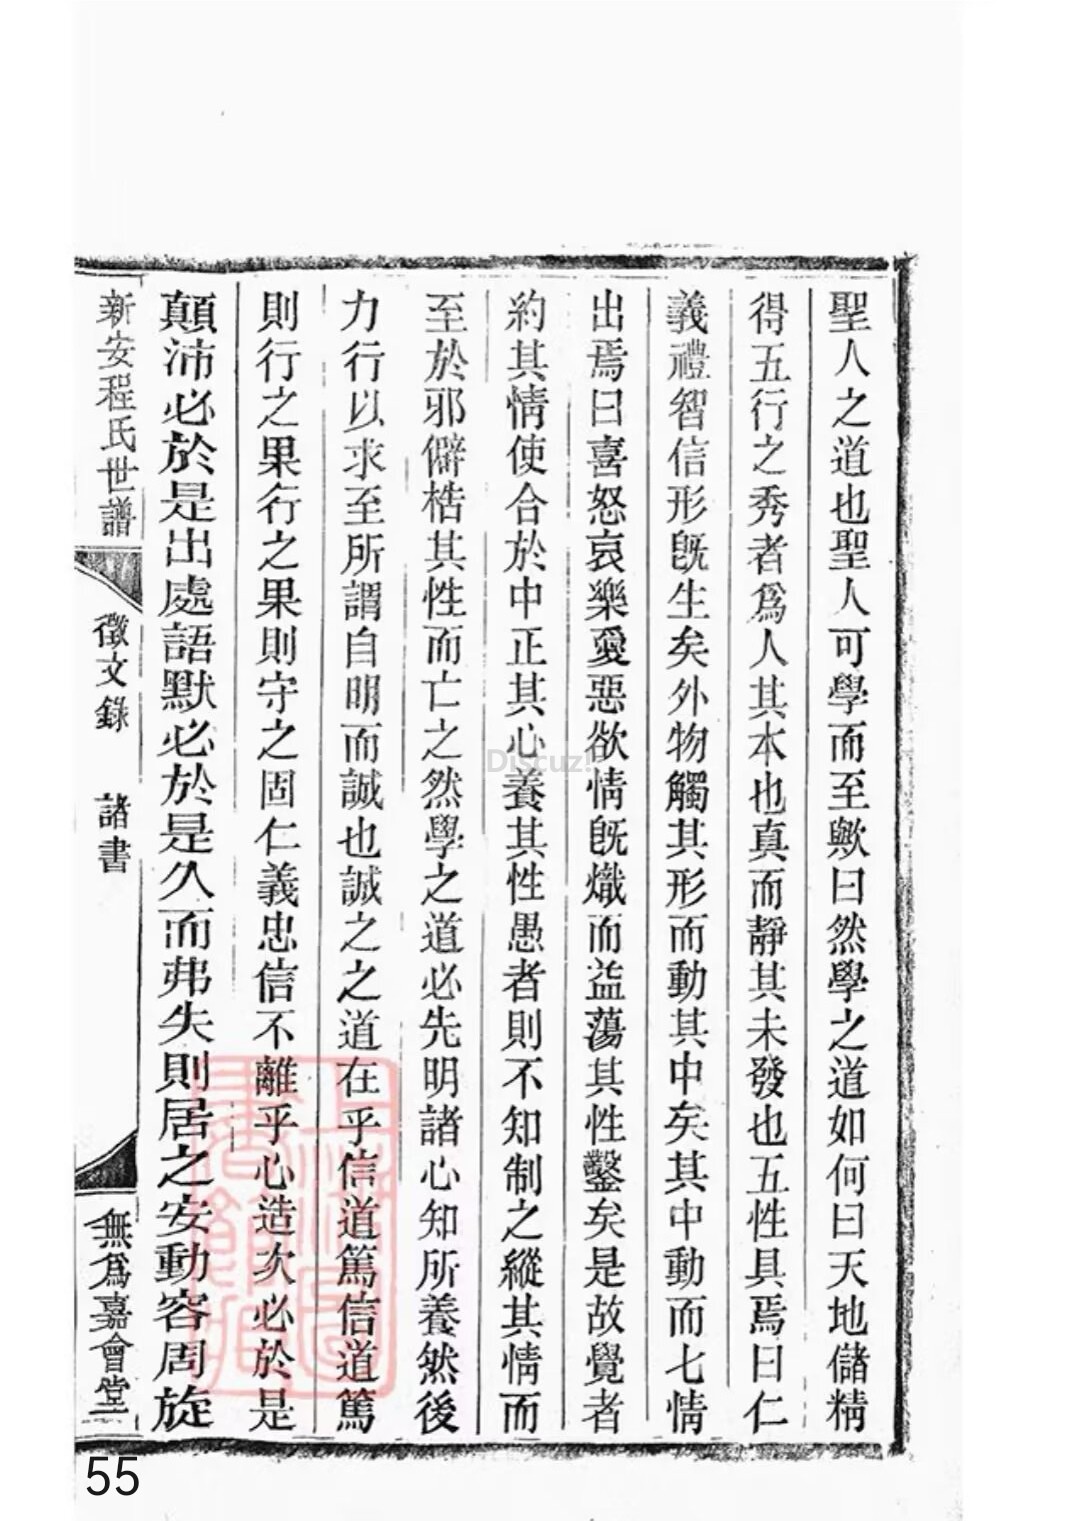 聖人之道也聖人可學而至歟曰然學之道如何曰天地儲精
得五行之秀者爲人其本也真而靜其未發也五性具焉曰仁
義禮智信形旣生矣外物觸其形而動其中矣其中動而七情
出焉曰喜怒哀樂愛惡欲情旣熾而益蕩其性鑿矣是故覺者
約其情使合於中正其心養其性愚者則不知制之縱其情而
至於邪僻梏其性而亡之然學之道必先明諸心知所養然後
力行以求至所謂自明而誠也誠之之道在乎信道篤信道篤
則行之果行之果則守之固仁義忠信不離乎心造次必於是
顛沛必於是出處語默必於是久而弗失則居之安動容周旋
新安程氏世譜
徵文錄
諸書
無爲嘉會堂
上海圖
書館藏
Discuz!
55